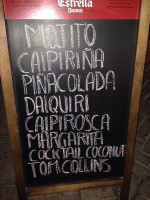 Estrella
Damm
MOJITO
CAIPIRIÑA
PIÑACOLADA
DAIQUIRI
CAIPIROSCA
MARGARITA
COCKTAIL COCONUT
TOM COLLINS